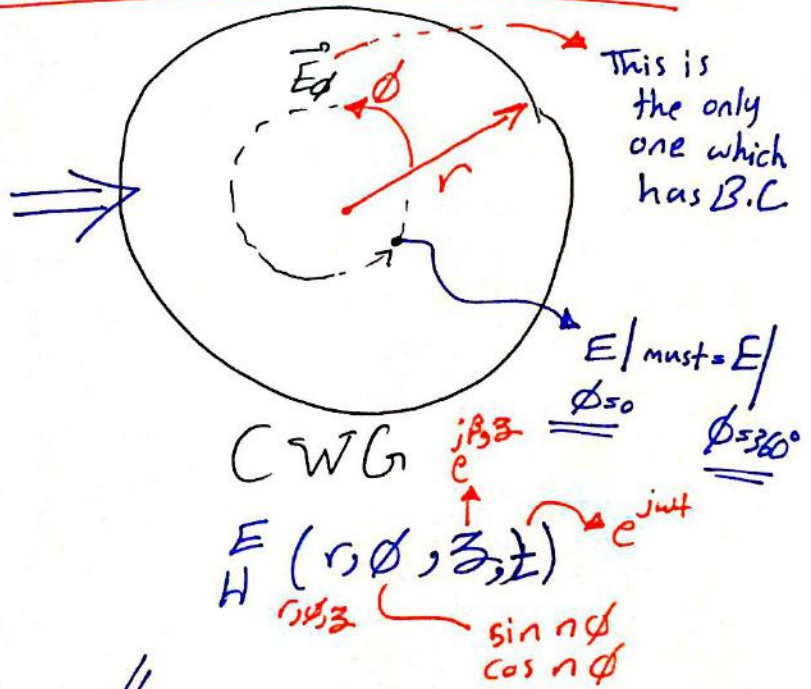 E⃗φ
φ
r
This is
the only
one which
has B.C
E| must = E|
φ=0
φ=360°
CWG
e^jβ,z
e^jωt
E (r, φ, z, t)
H
r,φ,z
sin nφ
cos nφ